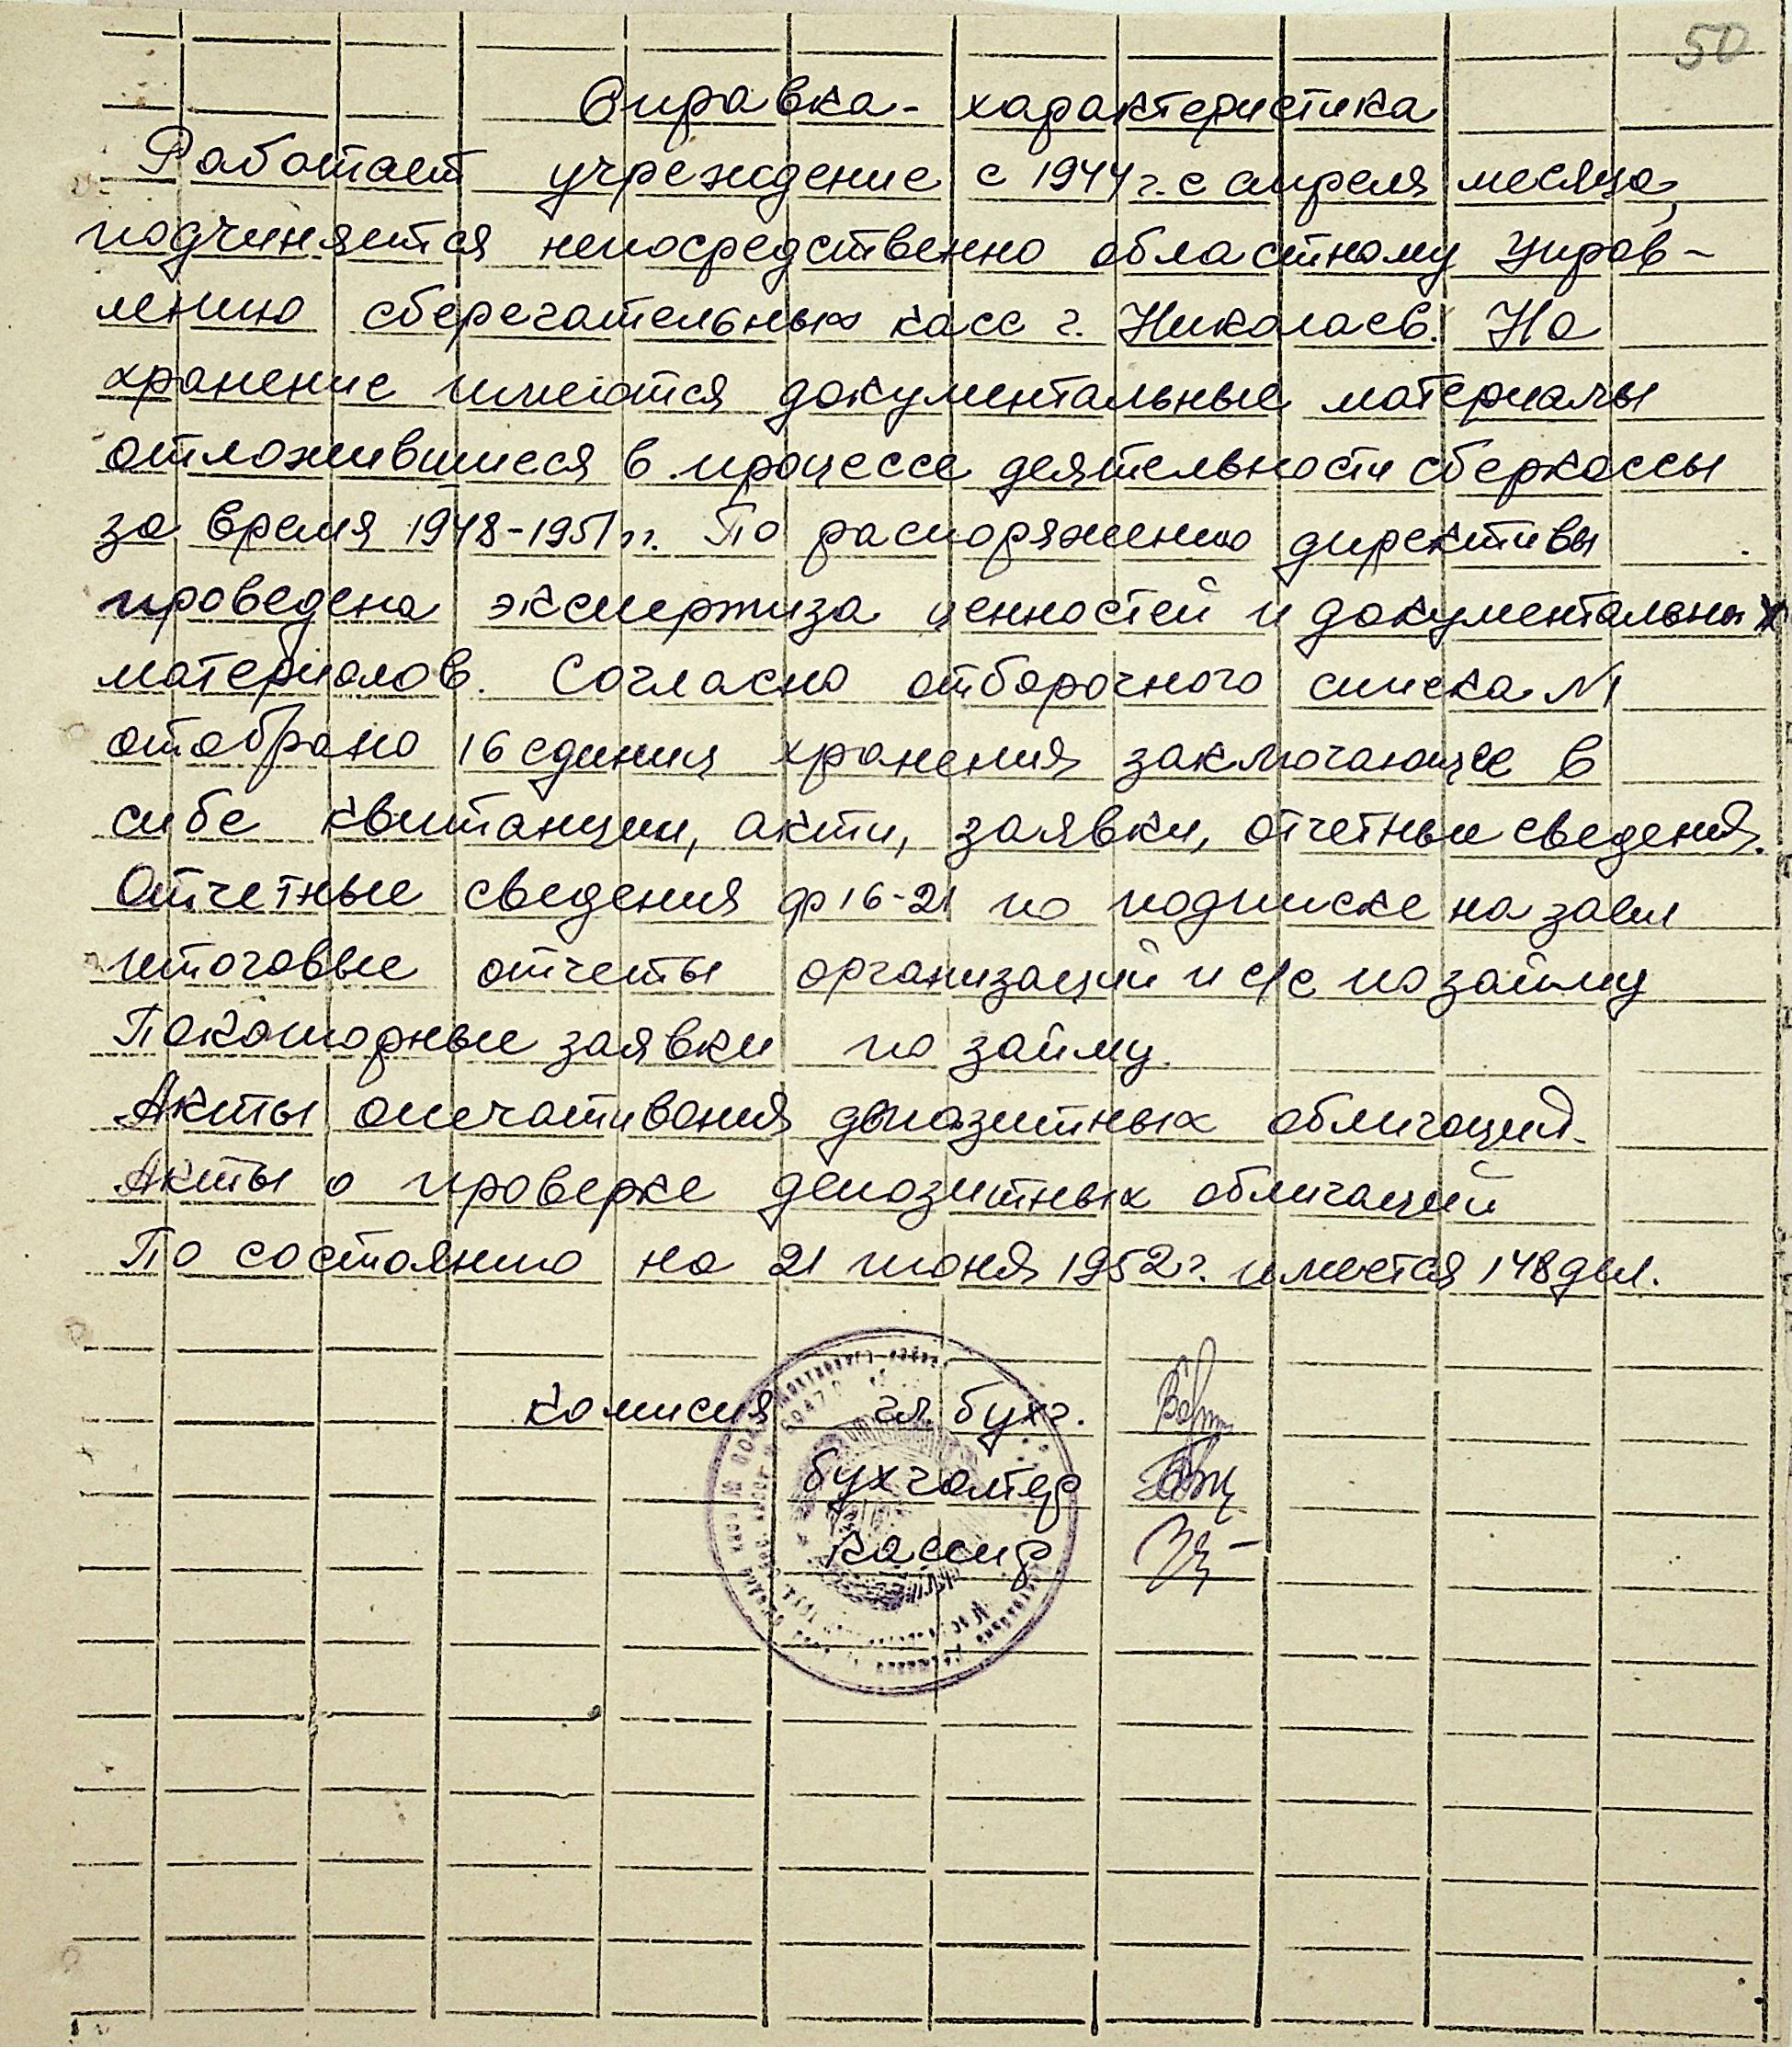 50
Справка - характеристика
Работает учреждение с 1944 г. с апреля месяца,
подчиняется непосредственно областному Управ-
лению сберегательных касс г. Николаев. На
хранение имеются документальные материалы
отложившиеся в процессе деятельности сберкассы
за время 1948-1951 гг. По распоряжению директивы
проведена экспертиза ценностей и документальных
материалов. Согласно отборочного списка №1
отобрано 16 единиц хранения заключающее в
сибе квитанции, акти, заявки, отчетные сведения.
Отчетные сведения ф 16-21 по подписке на заем
итоговые отчеты организаций и с/с по займу
заявки по займу.
Акты опечативания депозитных облигаций.
Акты о проверке депозитных облигаций
По состоянию на 21 июня 1952 г. имеется 148 дел.
комисия гл. бухг.
бухгалтер
Кассир